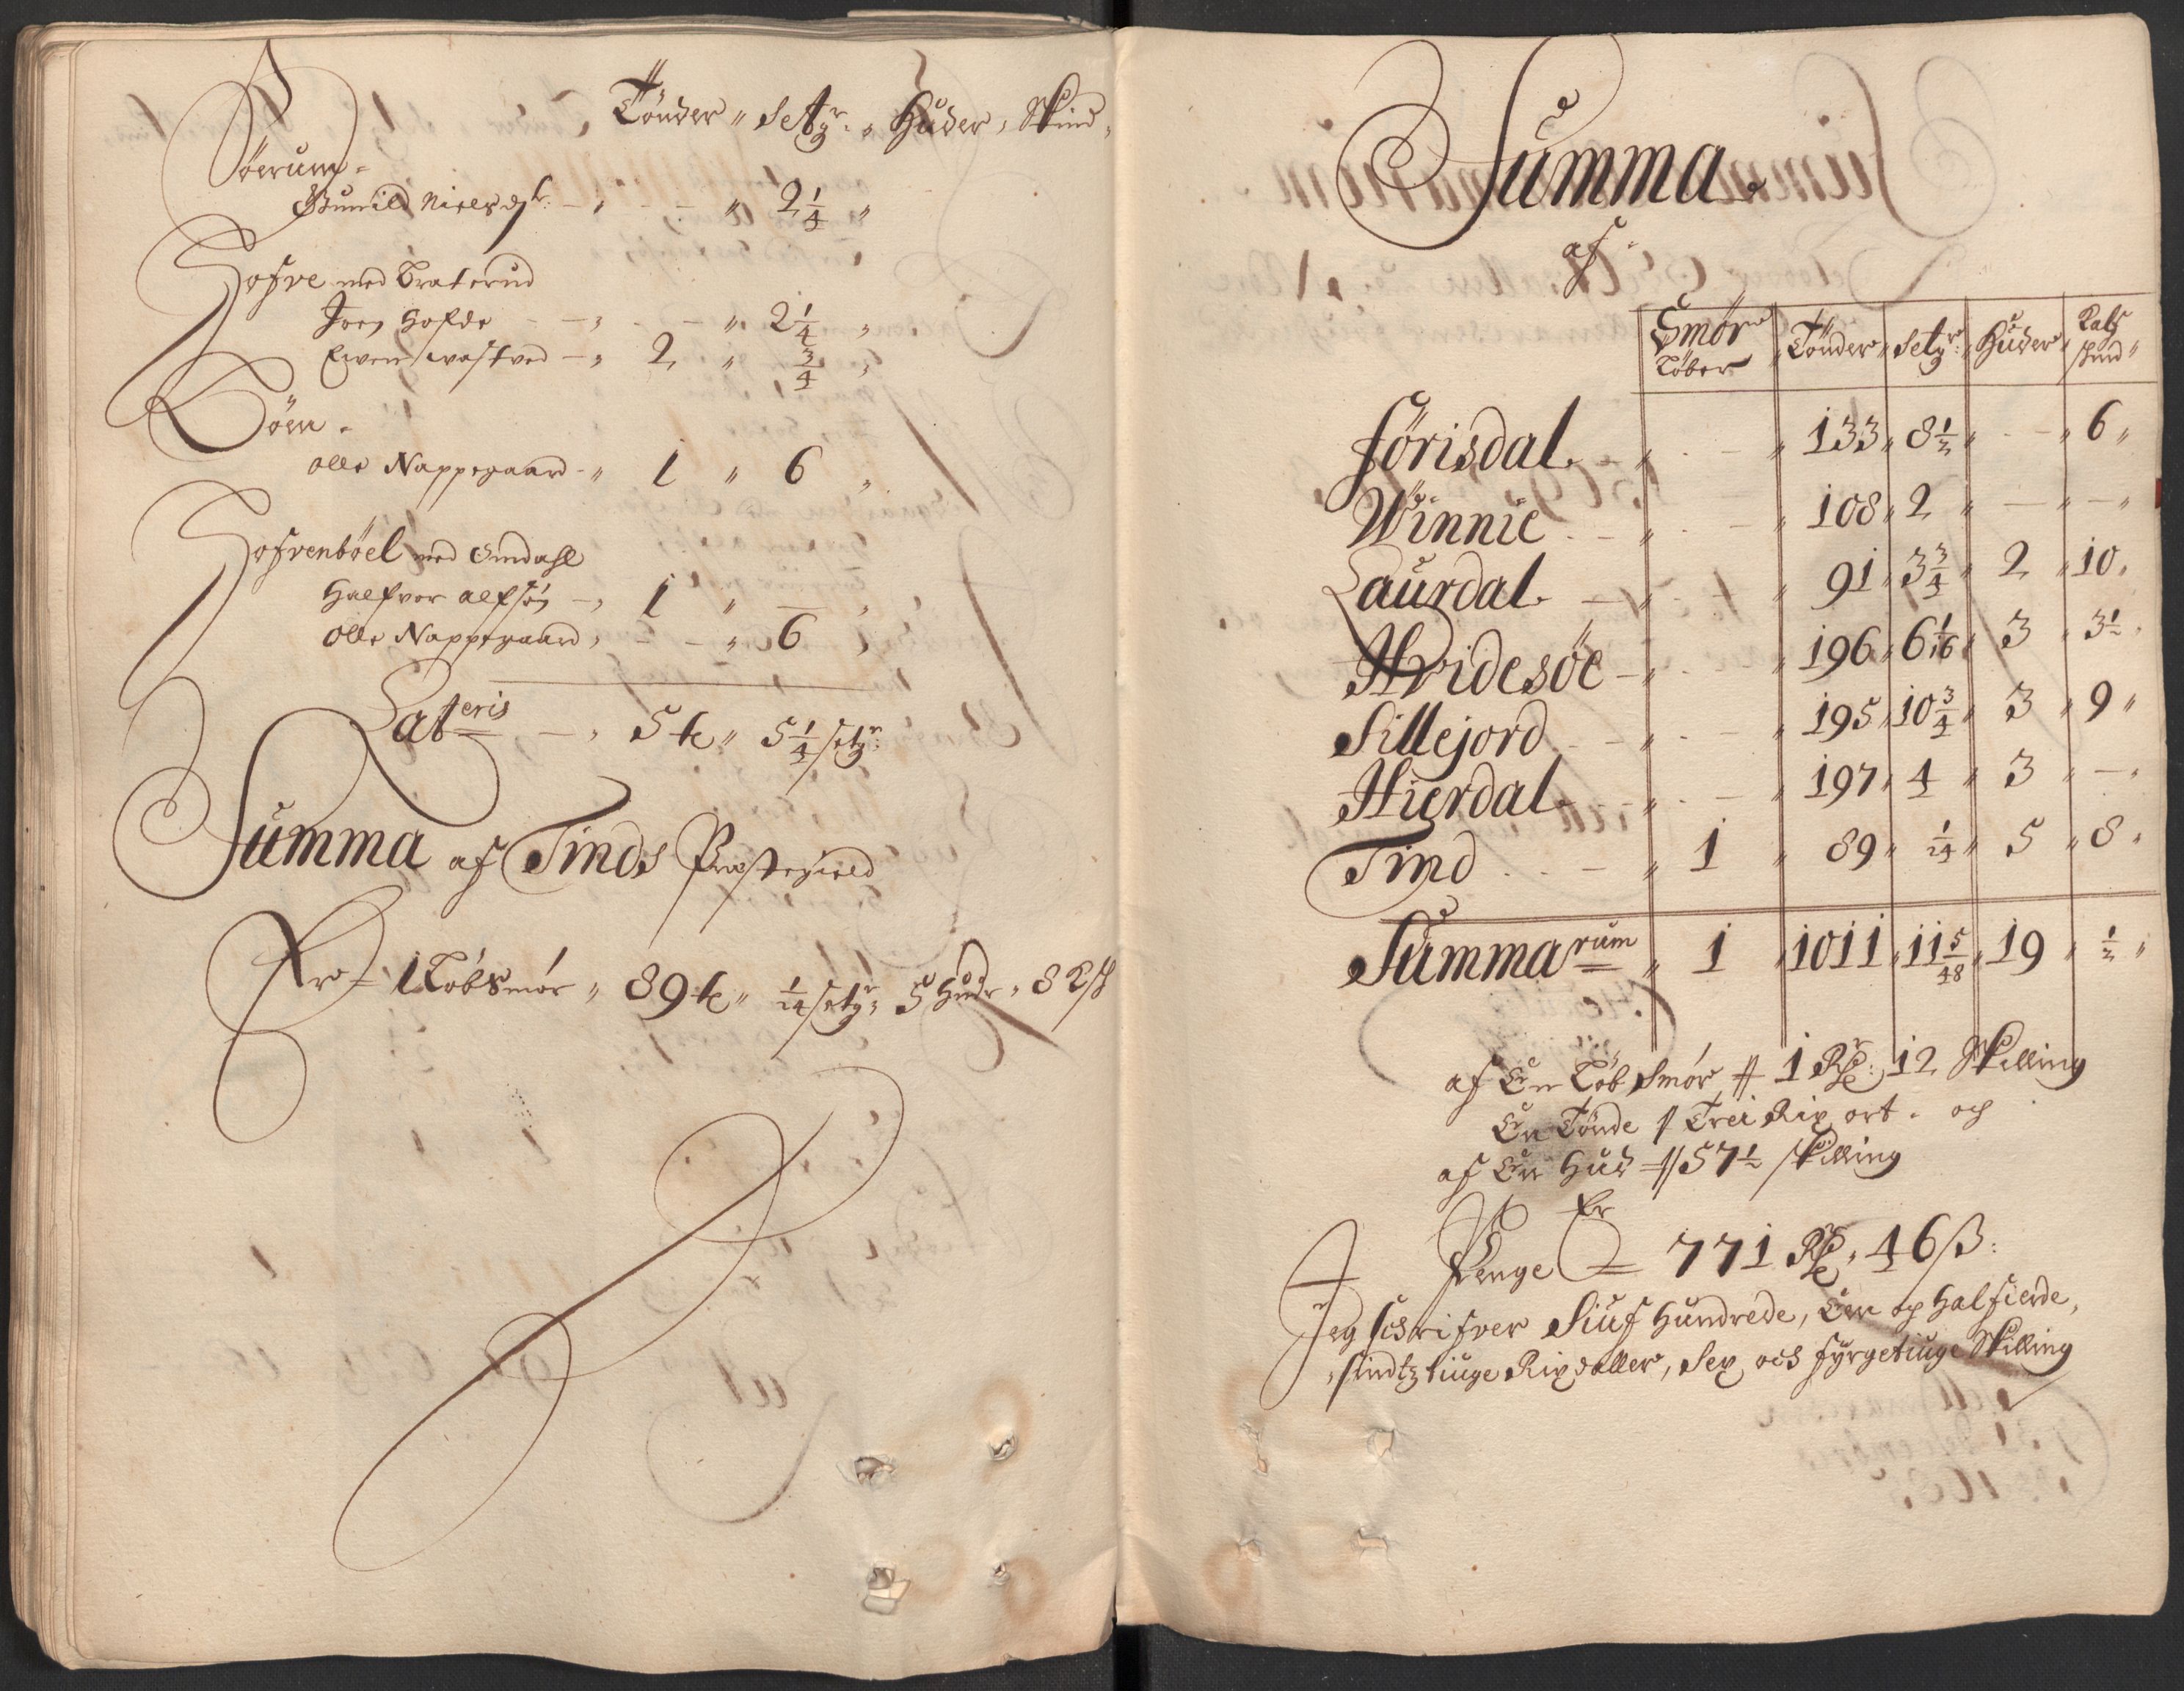 Tönder " Setgr. " Huder, Skind,
Söerum.
Gunild Nielsdtr. - , - - " 2 1/4 "
Hofve med Braterud
Joen Hofde - - , - - " 2 1/4 ,
Ewen wastved - , 2 " 3/4 ,
Döen.
Olle Nappegaard - " 1 " 6 "
Hofvenböel med Omdahl
Halfvor Alfsön - , 1 " — ,
Olle Nappegaard, - - " 6 ,
Lateris - , 5 te " 5 1/4 setgr.
Summa af Tinds Præstegield
Er 1 Löb Smör " 89 te " 1/24 setgr. 5 Hudr, 8 Ksk
Summa.
af
Smör Löber " Tönder " Setgr. " Huder " Kalf skind "
Förisdal. - " - - " 133 " 8 1/2 " - - " 6 "
Winnie - - " - - " 108 " 2 " — " — "
Laurdal. - " - - " 91 " 3 3/4 " 2 " 10 "
Hvidesöe - " - - " 196 " 6 1/16 " 3 " 3 1/2 "
Sillejord - - " - - " 195 " 10 3/4 " 3 " 9 "
Hierdal - - " - - " 197 " 4 " 3 " — "
Tind - - " 1 " 89 " 1/24 " 5 " 8 "
Summarum " 1 " 1011 " 11 5/48 " 19 " 1/2 "
af En Löb Smör // 1 Rdr: 12 Skilling
En Tönde // Trei Rix ort. och
af En Hud // 57 1/2 skilling
Er
Penge = 771 Rdr, 46 ß:
Jeg schrifver Siuf Hundrede, Een og Halfierde,
sindtztiuge Rixdaller, Sex och fyrgetiuge Skilling